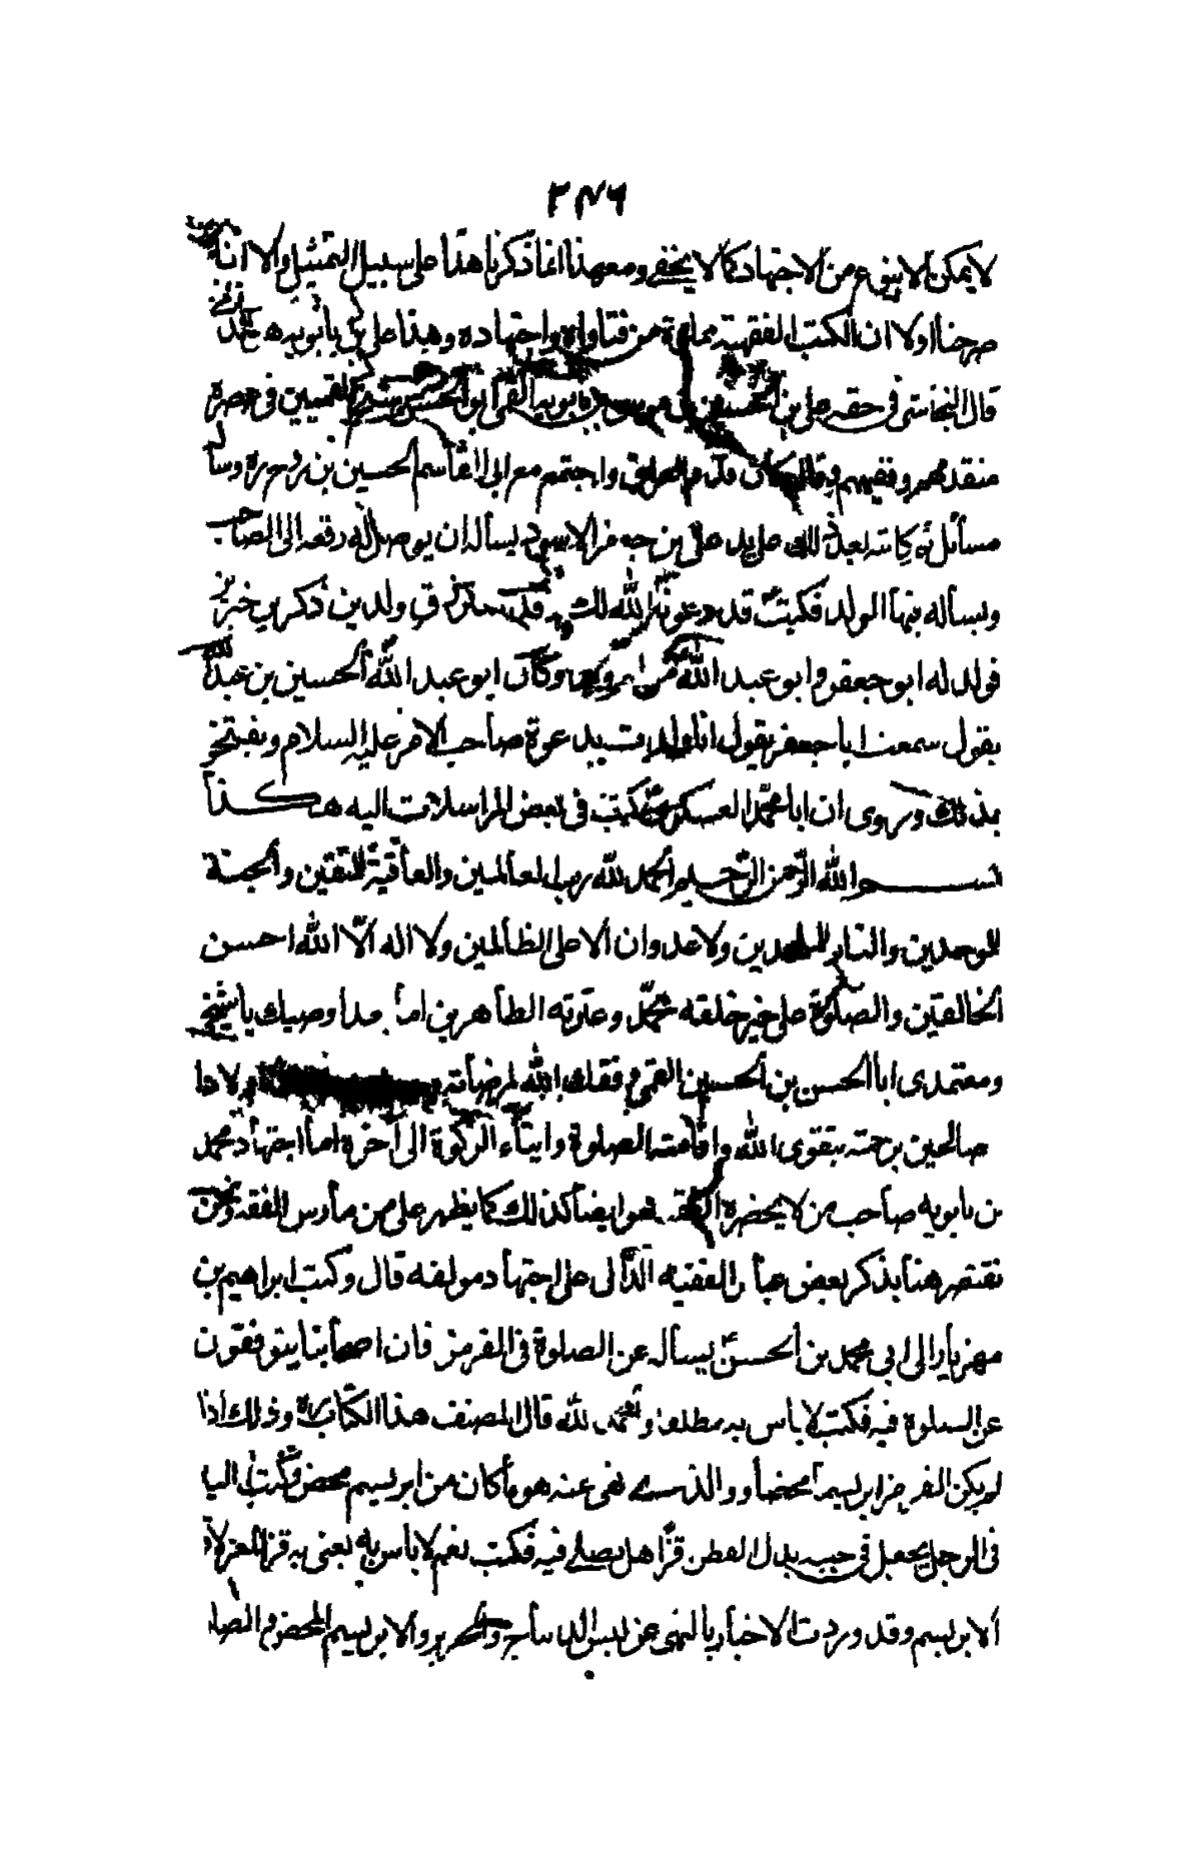 ٢٤٦
لا يمكن الا بنوع من الاجتهاد كما لا يخفى ومع هذا انما ذكرنا هذا على سبيل التمثيل والا انا
صرحنا اولا ان الكتب الفقهية مملوة من فتاواه واجتهاده وهذا على بن بابويه
قال النجاشى فى حقه على بن الحسين بن موسى بن بابويه القمى ابو الحسن شيخ القميين فى عصره
متقدمهم وفقيههم وثقتهم كان قدم العراق واجتمع مع ابى القاسم الحسين بن روح ره وسأ
مسائل ثم كاتبه بعد ذلك على يد على بن جعفر الاسود يسأله ان يوصل له رقعه الى الصاحب
ويسأله فيها الولد فكتب قد دعونا الله لك وسترزق ولدين ذكرين خيرين
فولد له ابو جعفر و ابو عبد الله من ام ولد وكان ابو عبد الله الحسين بن عبيد الله
يقول سمعت ابا جعفر يقول انا ولدت بدعوة صاحب الامر عليه السلام ويفتخر
بذلك وروى ان ابا محمد العسكرى كتب فى بعض المراسلات اليه هكذا
بسم الله الرحمن الرحيم الحمد لله رب العالمين والعاقبة للمتقين والجنة
للموحدين والنار للملحدين ولا عدوان الا على الظالمين ولا اله الا الله احسن
الخالقين والصلوة على خير خلقه محمد وعترته الطاهرين اما بعد اوصيك يا شيخى
ومعتمدى ابا الحسن بن الحسين القمى وفقك الله لمرضاته اولادا
صالحين برحمته بتقوى الله واقامة الصلوة وايتاء الزكوة الى آخره اما اجتهاد محمد
بن بابويه صاحب من لا يحضره الفقيه فهو ايضا كذلك كما يظهر على من مارس الفقه ونحن
نقتصر هنا بذكر بعض عبار الفقيه الدالى على اجتهاد مولفه قال وكتب ابراهيم بن
مهزيار الى ابى محمد بن الحسن يسأله عن الصلوة فى القرمز فان اصحابنا يتوقفون
عن الصلوة فيه فكتب لا باس به مطلقا والحمد لله قال المصنف هذا الكتاب ره وذلك اذا
لم يكن القرمز ابريسما محضا و والذى نهى عنه هو ما كان من ابريسم محض وكتب اليه
فى الرجل يجعل فى جبته بدل القطن قزا هل يصلى فيه فكتب نعم لا بأس به يعنى به قز المعز لا قز
الابريسم وقد وردت الاخبار بالنهى عن لبس الديباج والحرير والابريسم المحض و الصلا